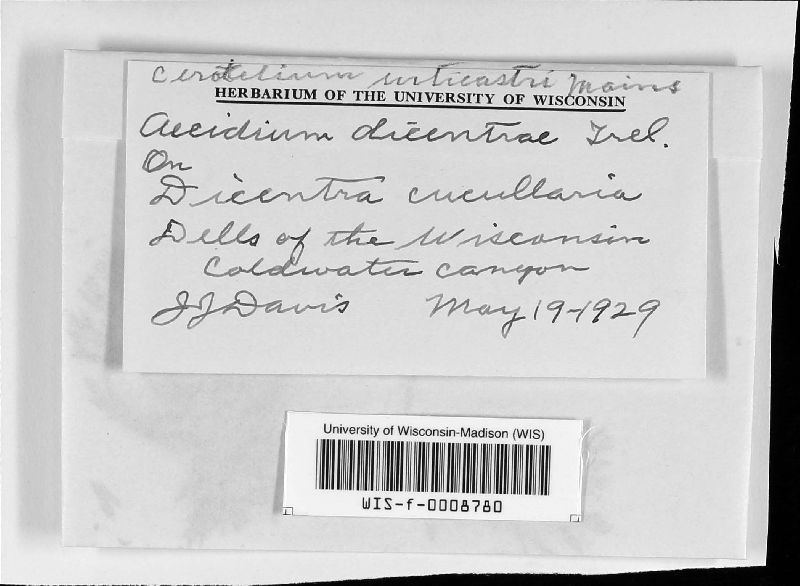 Cerotelium urticastri Mains
HERBARIUM OF THE UNIVERSITY OF WISCONSIN
Aecidium dicentrae Trel.
On
Dicentra cucullaria
Dells of the Wisconsin
Coldwater canyon
JJ Davis May 19-1929
University of Wisconsin-Madison (WIS)
WIS-f-0008780